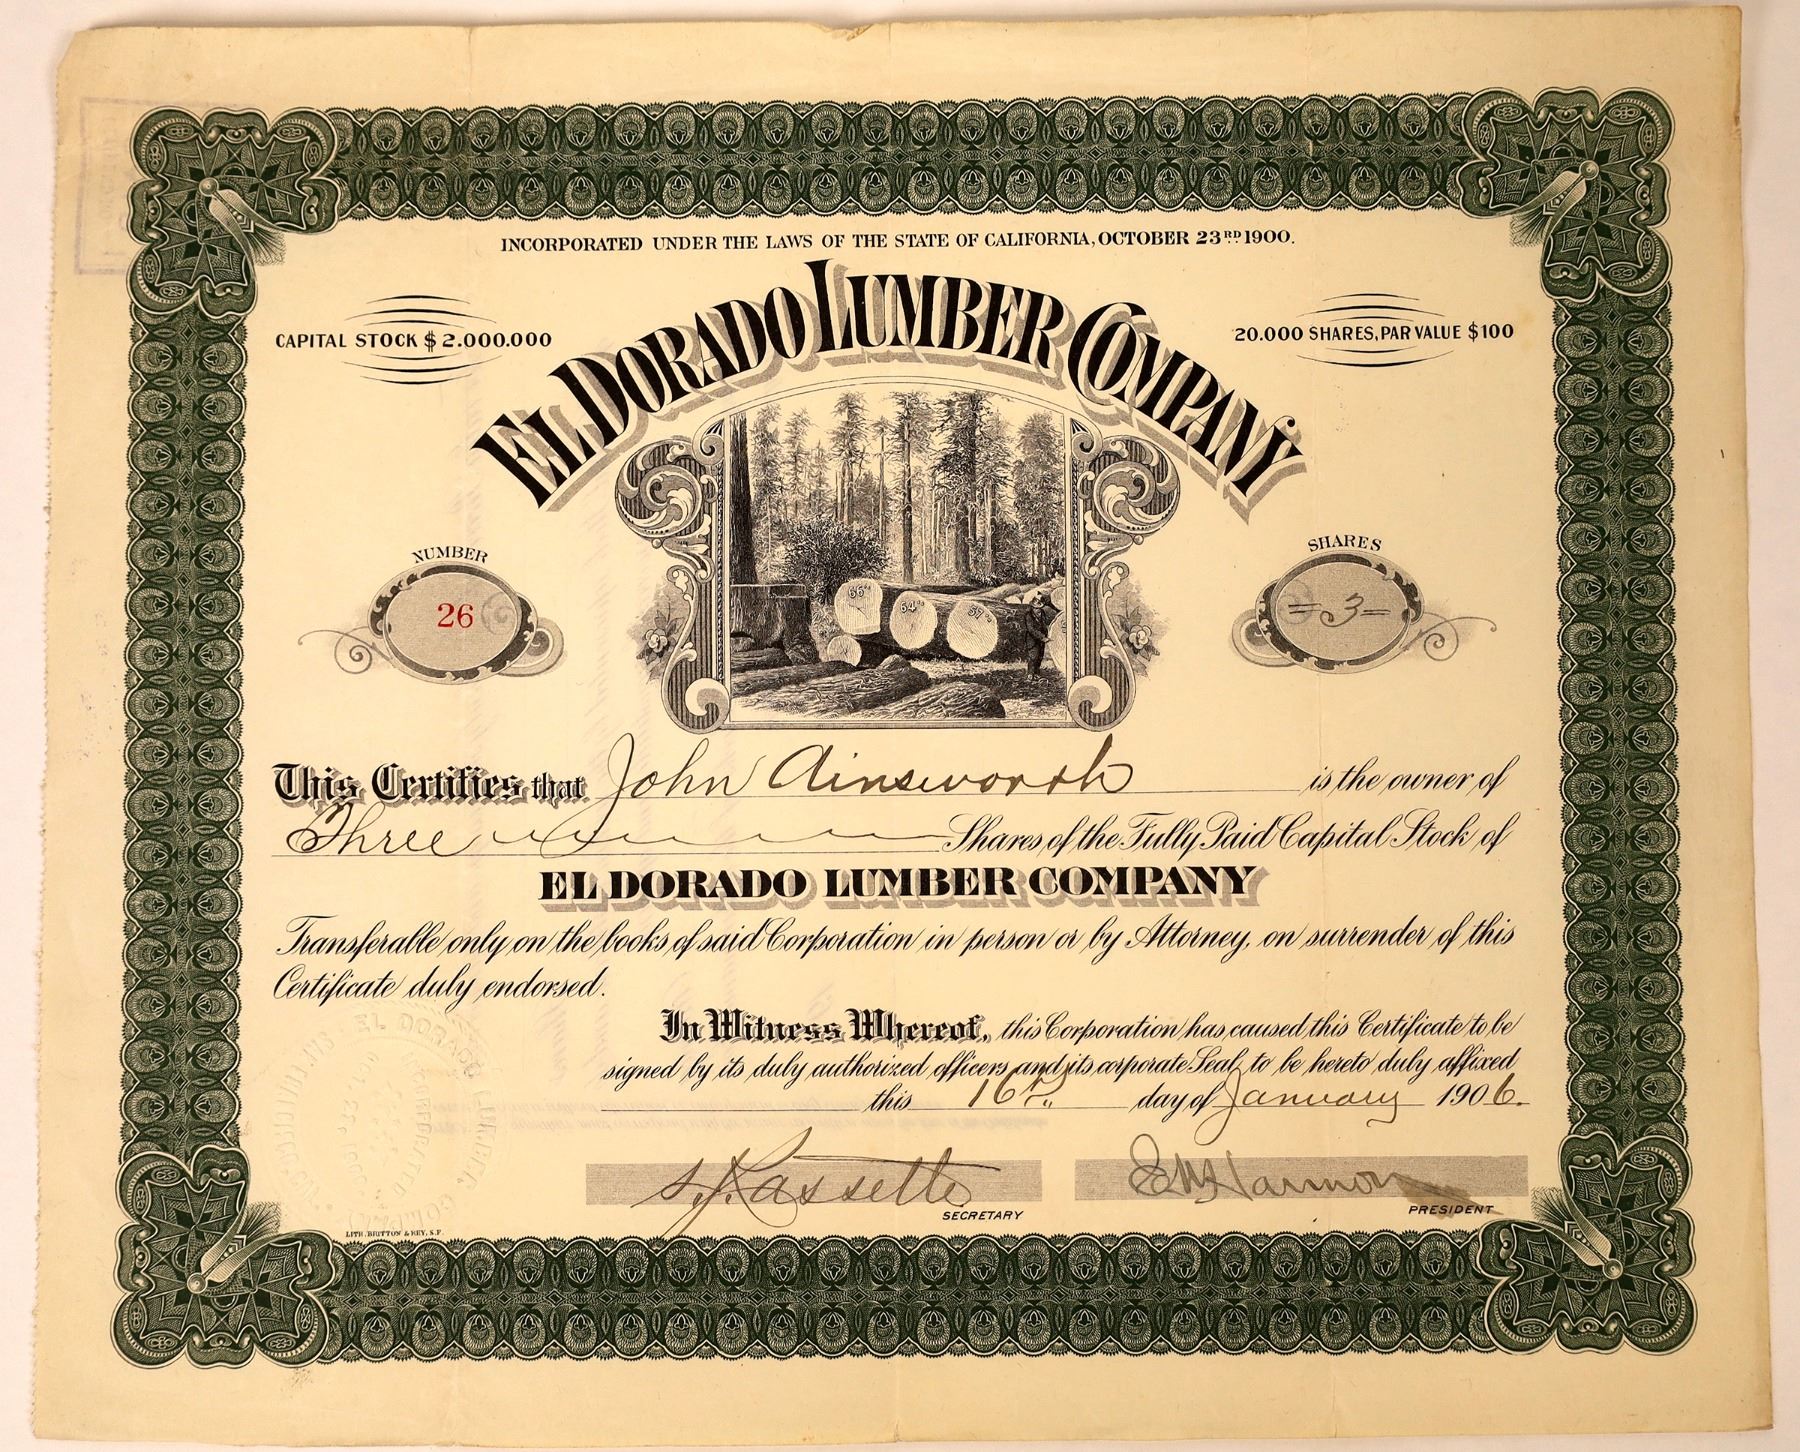 INCORPORATED UNDER THE LAWS OF THE STATE OF CALIFORNIA, OCTOBER 23RD 1900.
EL DORADO LUMBER COMPANY
CAPITAL STOCK $2.000.000
20.000 SHARES, PAR VALUE $100
NUMBER
26
SHARES
=3=
66"
64"
57"
This Certifies that John Ainsworth is the owner of
Three Shares of the Fully Paid Capital Stock of
EL DORADO LUMBER COMPANY
Transferable only on the books of said Corporation in person or by Attorney, on surrender of this
Certificate duly endorsed.
In Witness Whereof, this Corporation has caused this Certificate to be
signed by its duly authorized officers and its corporate Seal to be hereto duly affixed
this 16th day of January 1906.
SECRETARY
PRESIDENT
LITH. BRITTON & REY, S.F.
EL DORADO LUMBER COMPANY
INCORPORATED